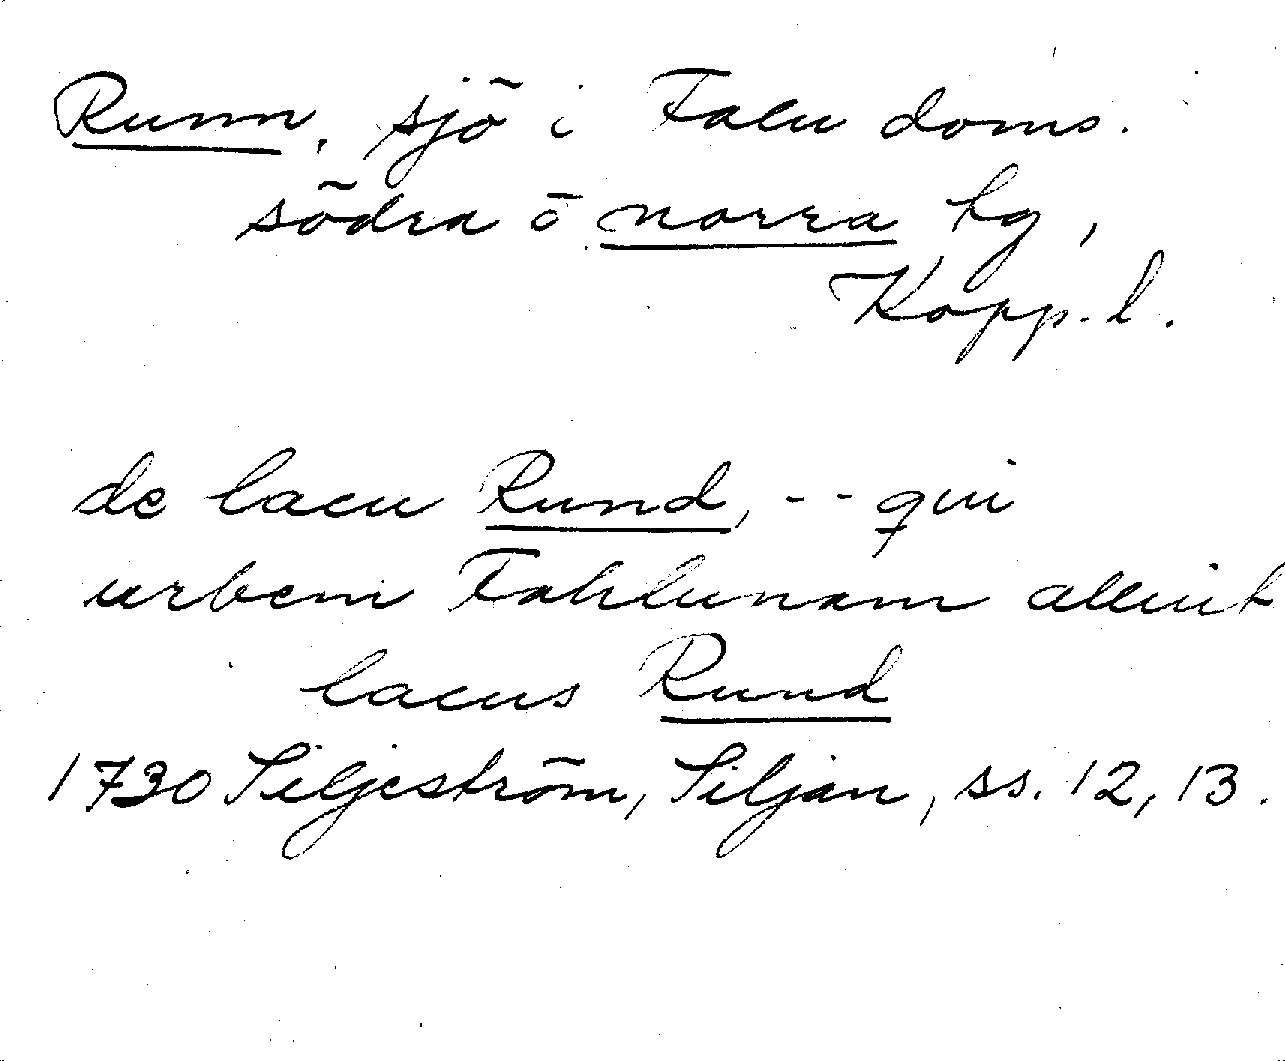 Runn, sjö i Falu doms.
södra o norra hg,
Kopp. l.
de lacu Rund, -- qui
urbem Fahlunam alluit
lacus Rund
1730 Siljeström, Siljan, ss. 12, 13.